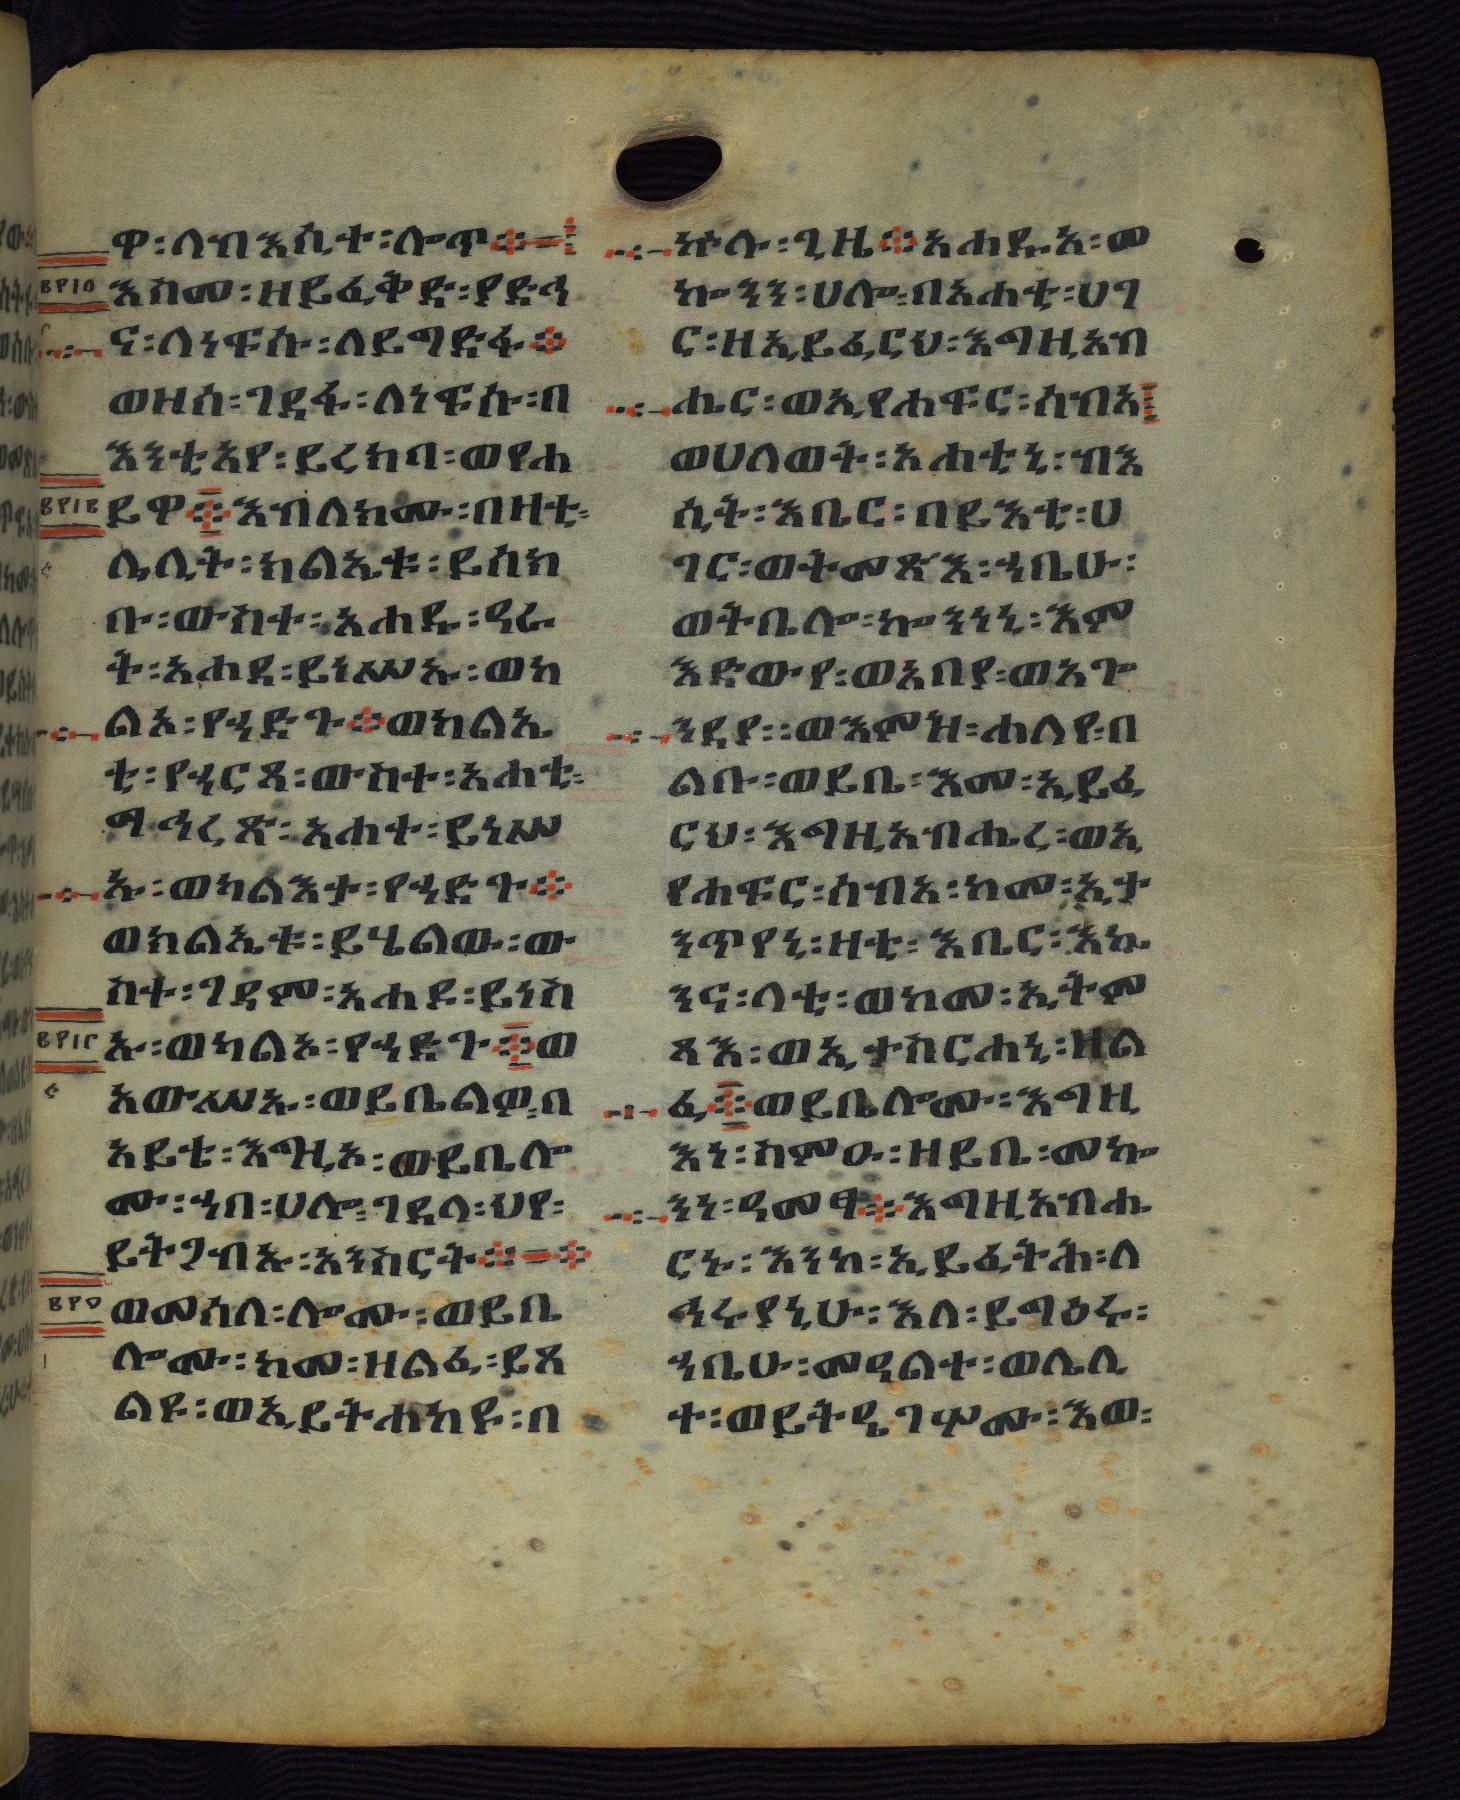 ዋ፡ለብእሲተ፡ሎጥ፨
እስመ፡ዘይፈቅድ፡ያድኅ
ና፡ለነፍሱ፡ለይግድፋ፨
ወዘሰ፡ገደፋ፡ለነፍሱ፡በ
እንቲአየ፡ይረክባ፡ወየሐ
ይዋ፨እብለክሙ፡በዛቲ፡
ሌሊት፡ክልኤቱ፡ይሰክ
ቡ፡ውስተ፡አሐዱ፡ዓራ
ት፡አሐደ፡ይነሥኡ፡ወክ
ልአ፡የኃድጉ፨ወክልኤ
ቲ፡የኃርጻ፡ውስተ፡አሐቲ፡
ማኅረጽ፡አሐተ፡ይነሥ
ኡ፡ወካልእተ፡የኃድጉ፨
ወክልኤቱ፡ይሄልው፡ው
ስተ፡ገዳም፡አሐደ፡ይነስ
ኡ፡ወካልአ፡የኃድጉ፨ወ
አውሥኡ፡ወይቤልዎ፡በ
አይቴ፡እግዚአ፡ወይቤሎ
ሙ፡ኀበ፡ሀሎ፡ገደላ፡ህየ፡
ይትጋብኡ፡አንስርት፨
ወመሰለ፡ሎሙ፡ወይቤ
ሎሙ፡ከመ፡ዘልፈ፡ይጸ
ልዩ፡ወኢይትሐከዩ፡በ
ኵሉ፡ጊዜ፨አሐዱ፡መ
ኰንን፡ሀሎ፡በአሐቲ፡ሀገ
ር፡ዘኢይፈርህ፡እግዚአብ
ሔር፡ወኢየሐፍር፡ሰብአ
ወሀለወት፡አሐቲኒ፡ብእ
ሲት፡እቤር፡በይእቲ፡ሀ
ገር፡ወትመጽእ፡ኀቤሁ፡
ወትቤሎ፡ኰንነኒ፡እም
እድውየ፡ወአበየ፡ወአጐ
ንደየ፡ወእምዝ፡ሐለየ፡በ
ልቡ፡ወይቤ፡እመ፡ኢይፈ
ርህ፡እግዚአብሔረ፡ወኢ
የሐፍር፡ሰብአ፡ከመ፡ኢታ
ንጥየኒ፡ዛቲ፡እቤር፡እኴ
ንና፡ላቲ፡ወከመ፡ኢትም
ጻእ፡ወኢታስርሐኒ፡ዘል
ፈ፨ወይቤሎሙ፡እግዚ
እነ፡ስምዑ፡ዘይቤ፡መኰ
ንነ፡ዓመፃ፨እግዚአብሔ
ርኑ፡እንከ፡ኢይፈትሕ፡ለ
ኅሩያኒሁ፡እለ፡ይግዕሩ፡
ኀቤሁ፡መዓልተ፡ወሌሊ
ተ፡ወይትዔገሦሙ፡እወ፡